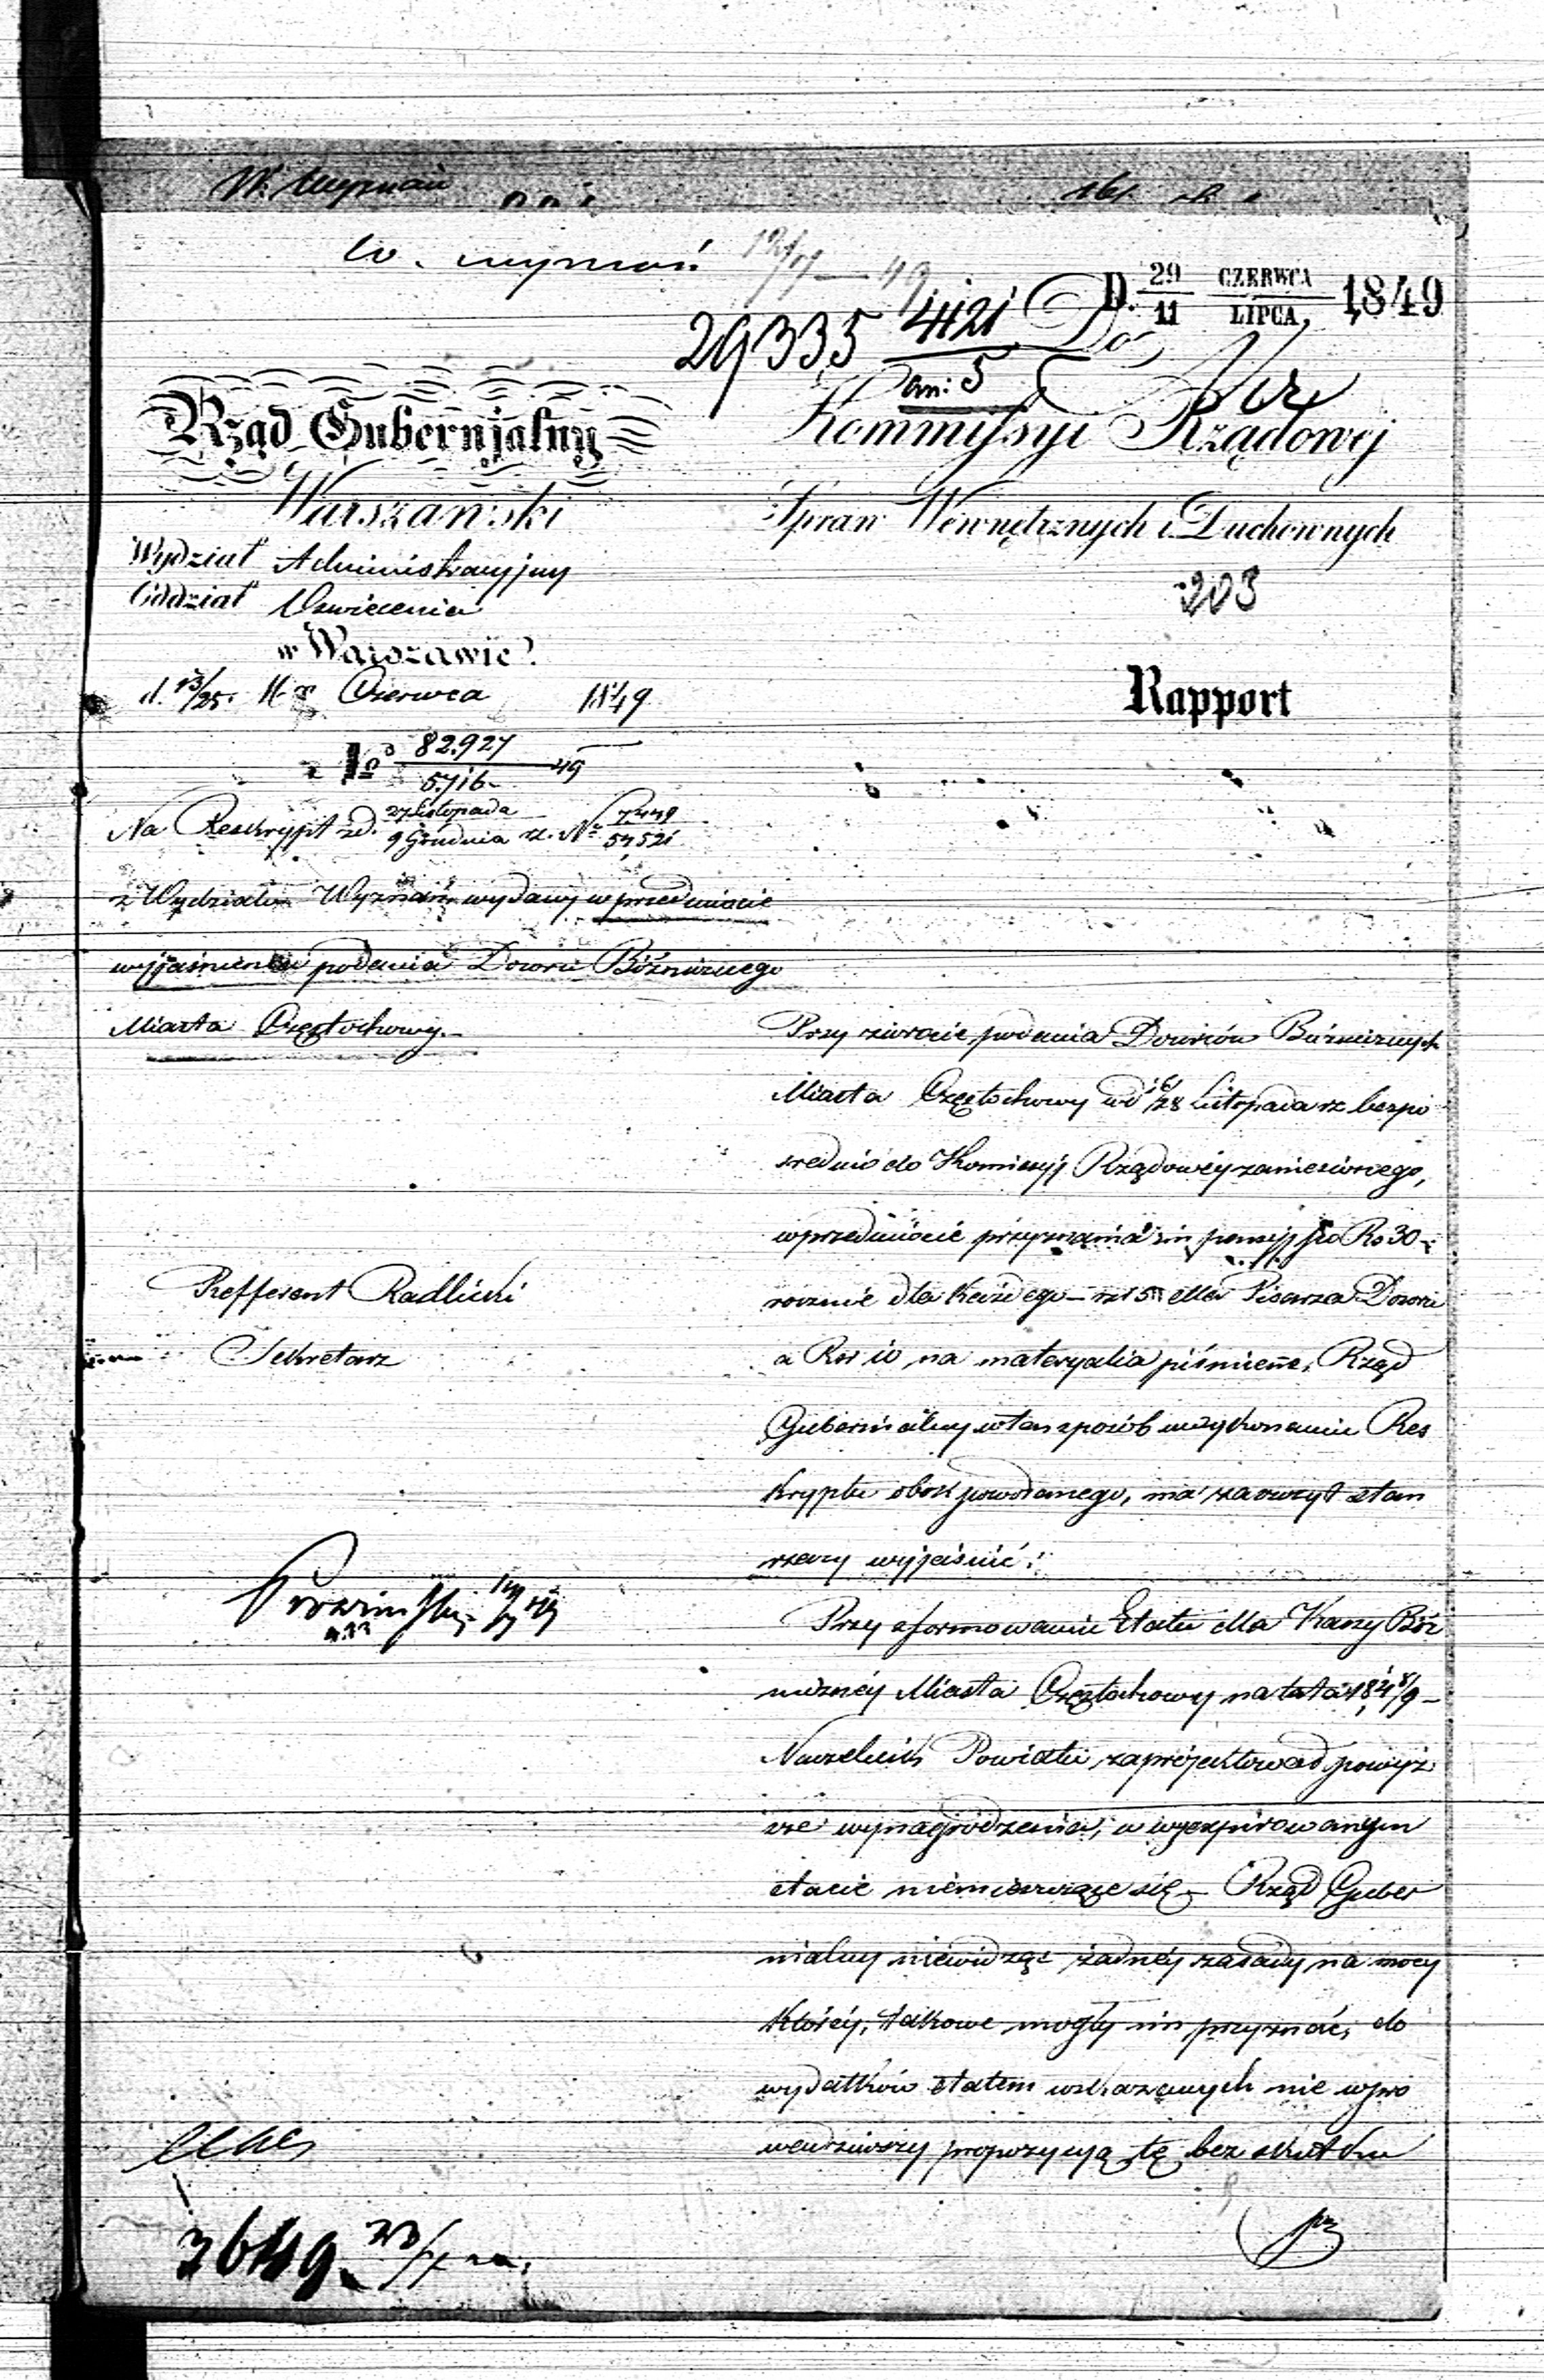 W. wyznań
D. 29/11 CZERWCA/LIPCA, 1849
29335 4121
an: 5
Do
Kommissyi Rządowej
Spraw Wewnętrznych i Duchownych
203
Rapport
Rząd Gubernjalny
Warszawski
Wydział Administracyjny
Oddział Oswiecenia
w Warszawie.
d. 13/25. Mca Czerwca 1849
No 82.927/5.716 49
Na Reskrypt zd. 27 Listopada/9 Grudnia rz. No 7449/54,521
z Wydziału Wyznań wydany w przedmiocie
wyjaśnienia podania Dozoru Bóźniczego
Miasta Częstochowy.
Refferent Radlicki
Sekretarz
Przy zwrocie podania Dozorców Bóźnicznych
Miasta Częstochowy zd 16/28 Listopada rz bezpo
srednio do Komissyj Rządowéy zaniesionego,
w przedmiocie przyznania im pensyj po Rs 30
rocznie dla każdego – rs 15 dla Pisarza Dozoru
a Rsr 10 na materyalia piśmiene, Rząd
Gubernialny w ten sposób w wykonaniu Res
kryptu obok powołanego, ma zaszczyt stan
rzeczy wyjaśnić:
Przy sformowaniu Etatu dla Kassy Bóż
niczney Miasta Częstochowy na lata 184 8/9
Naczelnik Powiatu zaprojektował powyż
sze wynagrodzenia, w wyexpirowanym
etacie niemieszczące się – Rząd Guber
nialny niewidząc żadnéy zasady na mocy
któréy, takowe mogły im przyznać, do
wydatków etatem wskazanych nie wpro
wadziwszy propozycyą tę bez skutku
3649. 23/7